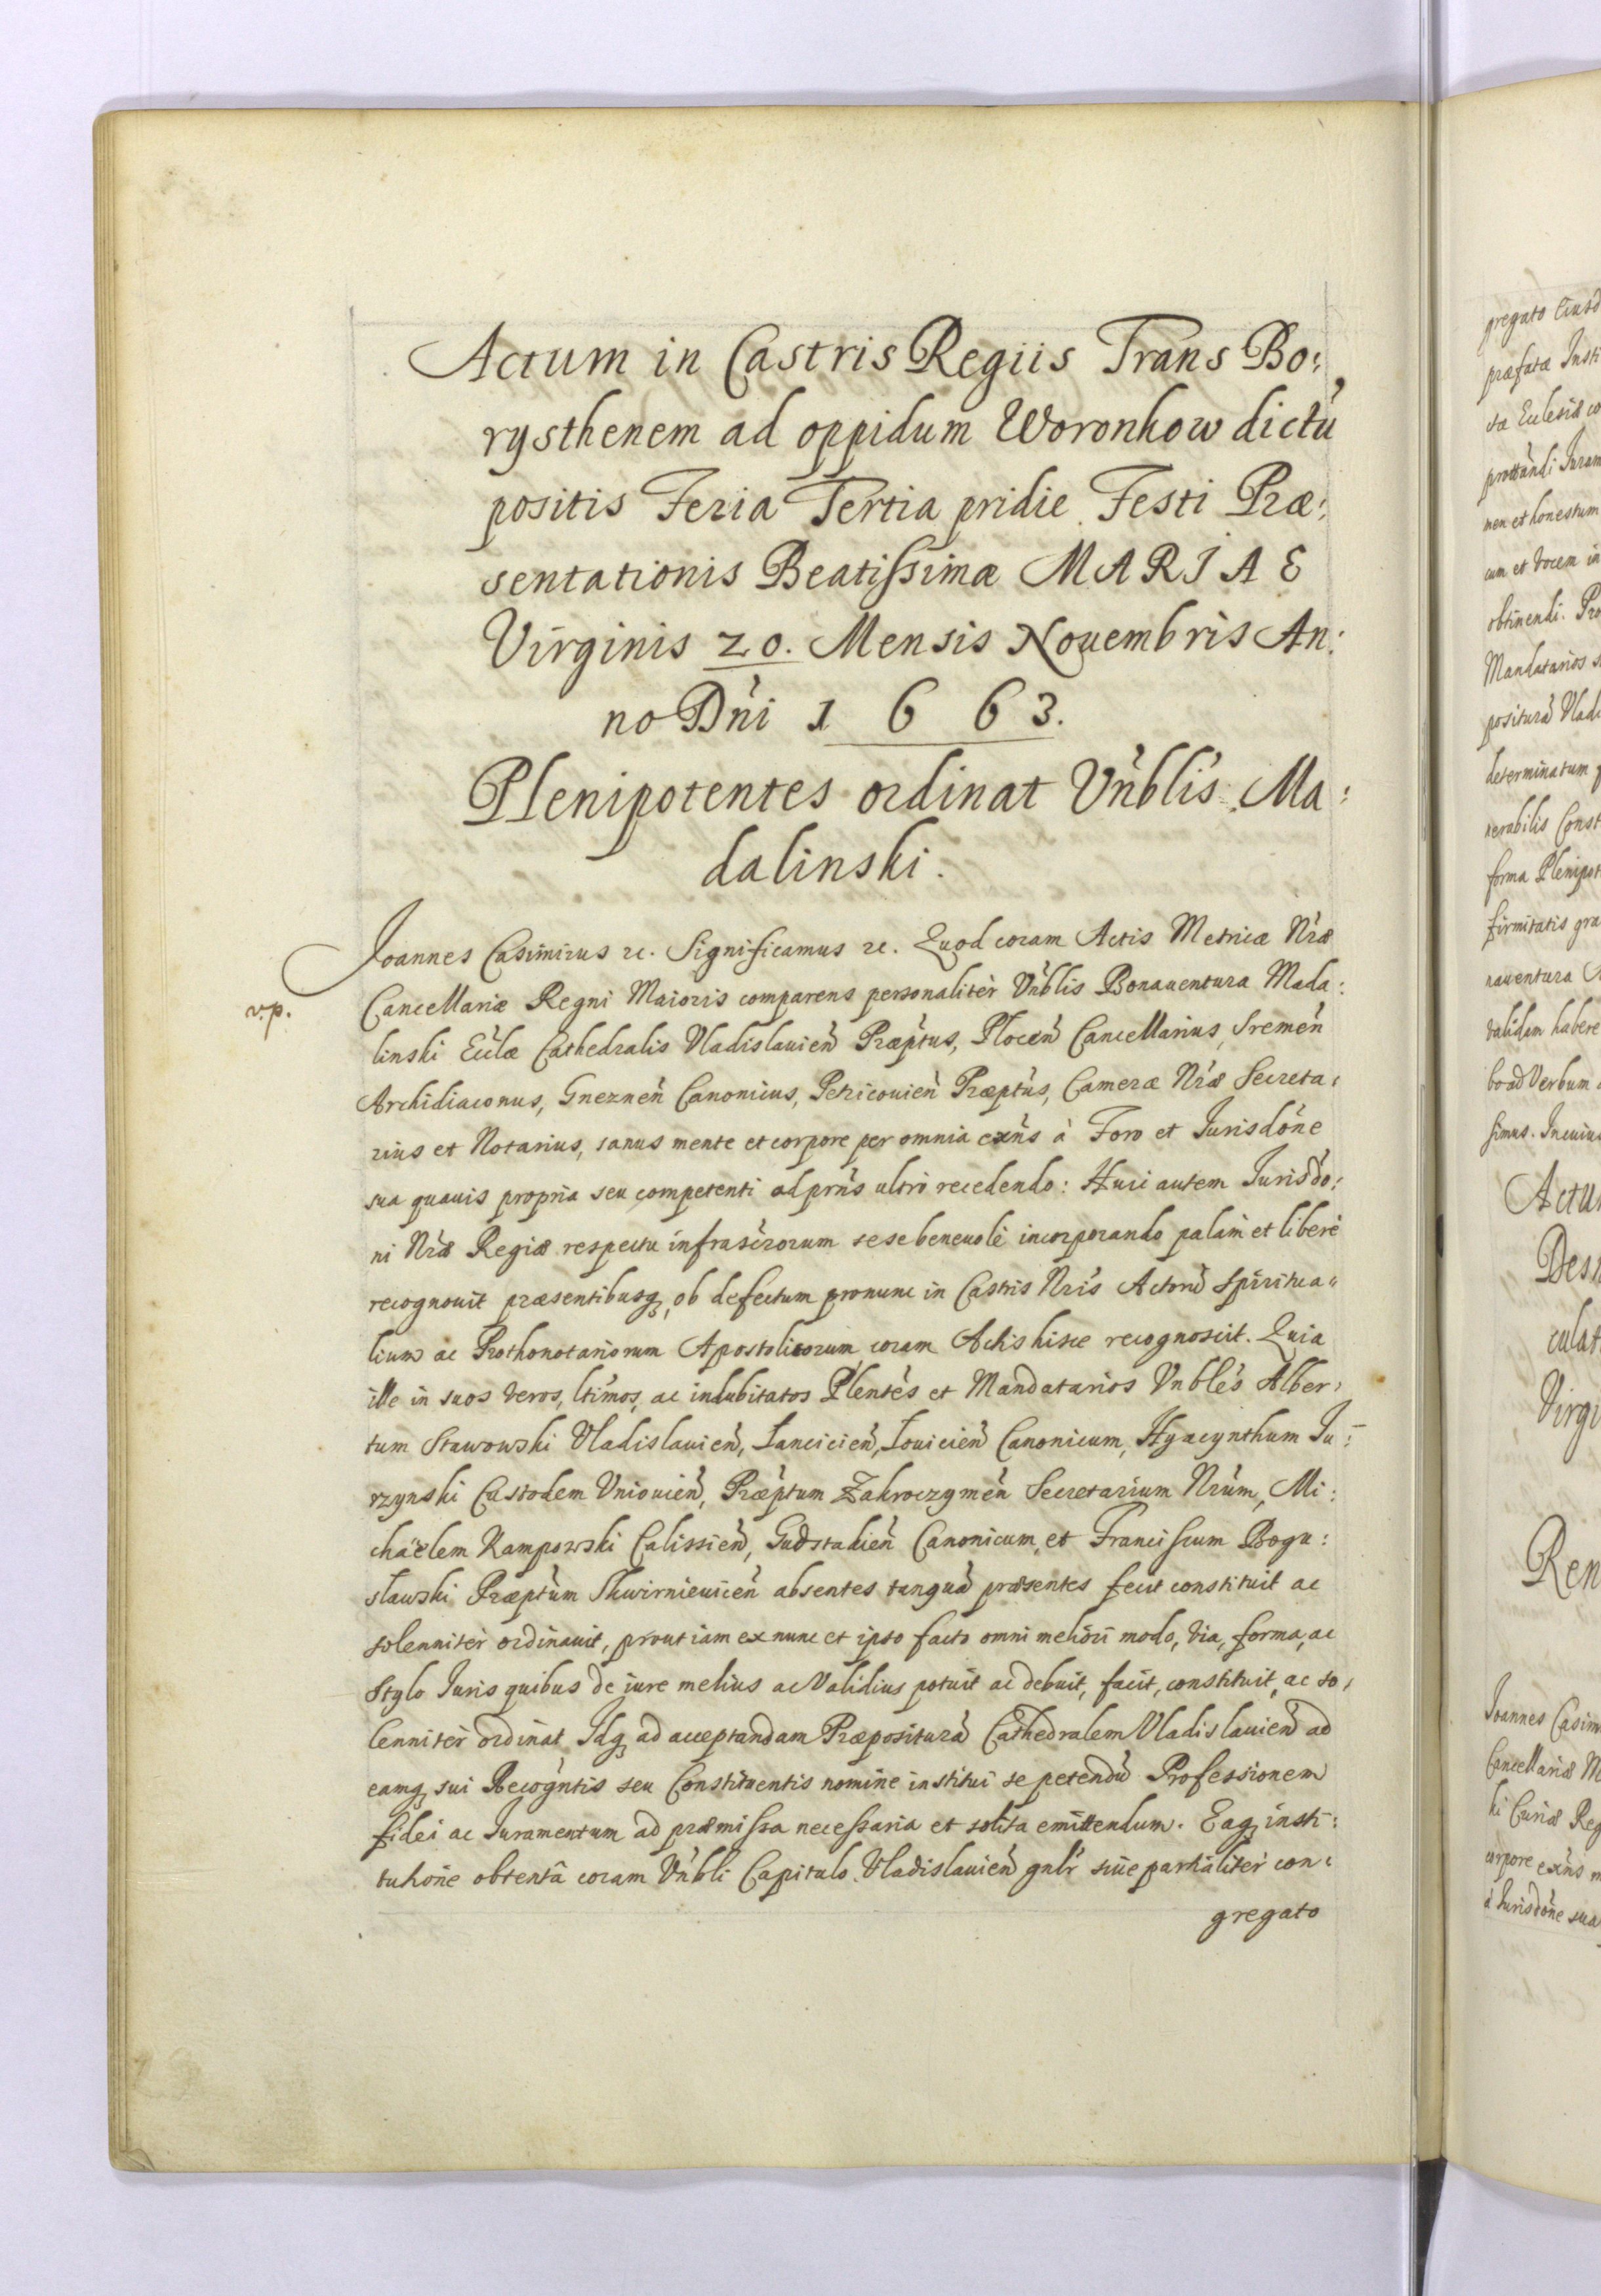 Actum in Castris Regiis Trans Bo:
rysthenem ad oppidum Woronkow dictu͂
positis Feria Tertia pridie Festi Præ:
sentationis Beatissimæ MARIAE
Virginis 20. Mensis Nouembris An:
no Dn̄i 1663.
Plenipotentes ordinat Vn̄blis Ma:
dalinski.
Joannes Casimirus rc. Significamus rc. Quod coram Actis Metricæ Nr̄æ
v.p.
Cancellariæ Regni Maioris comparens personalitèr Vn̄blis Bonauentura Mada:
linski Eccl̄æ Cathedralis Vladislauien̄ Præp̄tus, Plocen̄ Cancellarius, Sremen̄
Archidiaconus, Gneznen̄ Canonicus, Petricouien̄ Præp̄tus, Cameræ Nr̄æ Secreta:
rius et Notarius, sanus mente et corpore per omnia exn̄s à Foro et Jurisdōne
sua quauis propria seu competenti ad prn̄s ultrò recedendo: Huic autem Jurisdō:
ni Nr̄æ Regiæ respectu infrascr̄orum sese beneuolè incorporando palàm et liberè
recognouit præsentibusq₃ ob defectum pronunc in Castris Nrīs Actoru͂ Spiritua:
lium ac Prothonotariorum Apostolicorum coram Actis hisce recognoscit. Quia
ille in suos veros, ltīmos, ac indubitatos Plentēs et Mandatarios Vn̄bles Alber:
tum Stawowski Vladislauien̄, Lancicien̄, Louicien̄ Canonicum, Hyacynthum Ju:
rzynski Custodem Vniouien̄, Præp̄tum Zakroczymen̄ Secretarium Nr̄um, Mi:
chäelem Kampowski Calissien̄, Gudstadien̄ Canonicum, et Franciscum Bogu:
sławski Præp̄tum Skwirnieuicen̄ absentes tanqua͂ præsentes fecit constituit ac
solennitèr ordinauit, prout iam ex nunc et ipso facto omni meliori modo, via, forma, ac
stylo Juris quibus de iure melius ac validius potuit ac debuit, facit, constituit, ac so:
lennitèr ordinat Idq₃ ad acceptandam Præpositura͂ Cathedralem Vladislauien̄ ad
eamq₃ sui Recogn̄tis seu Constituentis nomine institui se petendu͂ Professionem
fidei ac Juramentum ad præmissa necessaria et solita emittendum. Eaq₃ insti:
tutiōne obtentâ coram Vn̄bli Capitulo Vladislauien̄ gnl̄r siue partialitèr con:
gregato